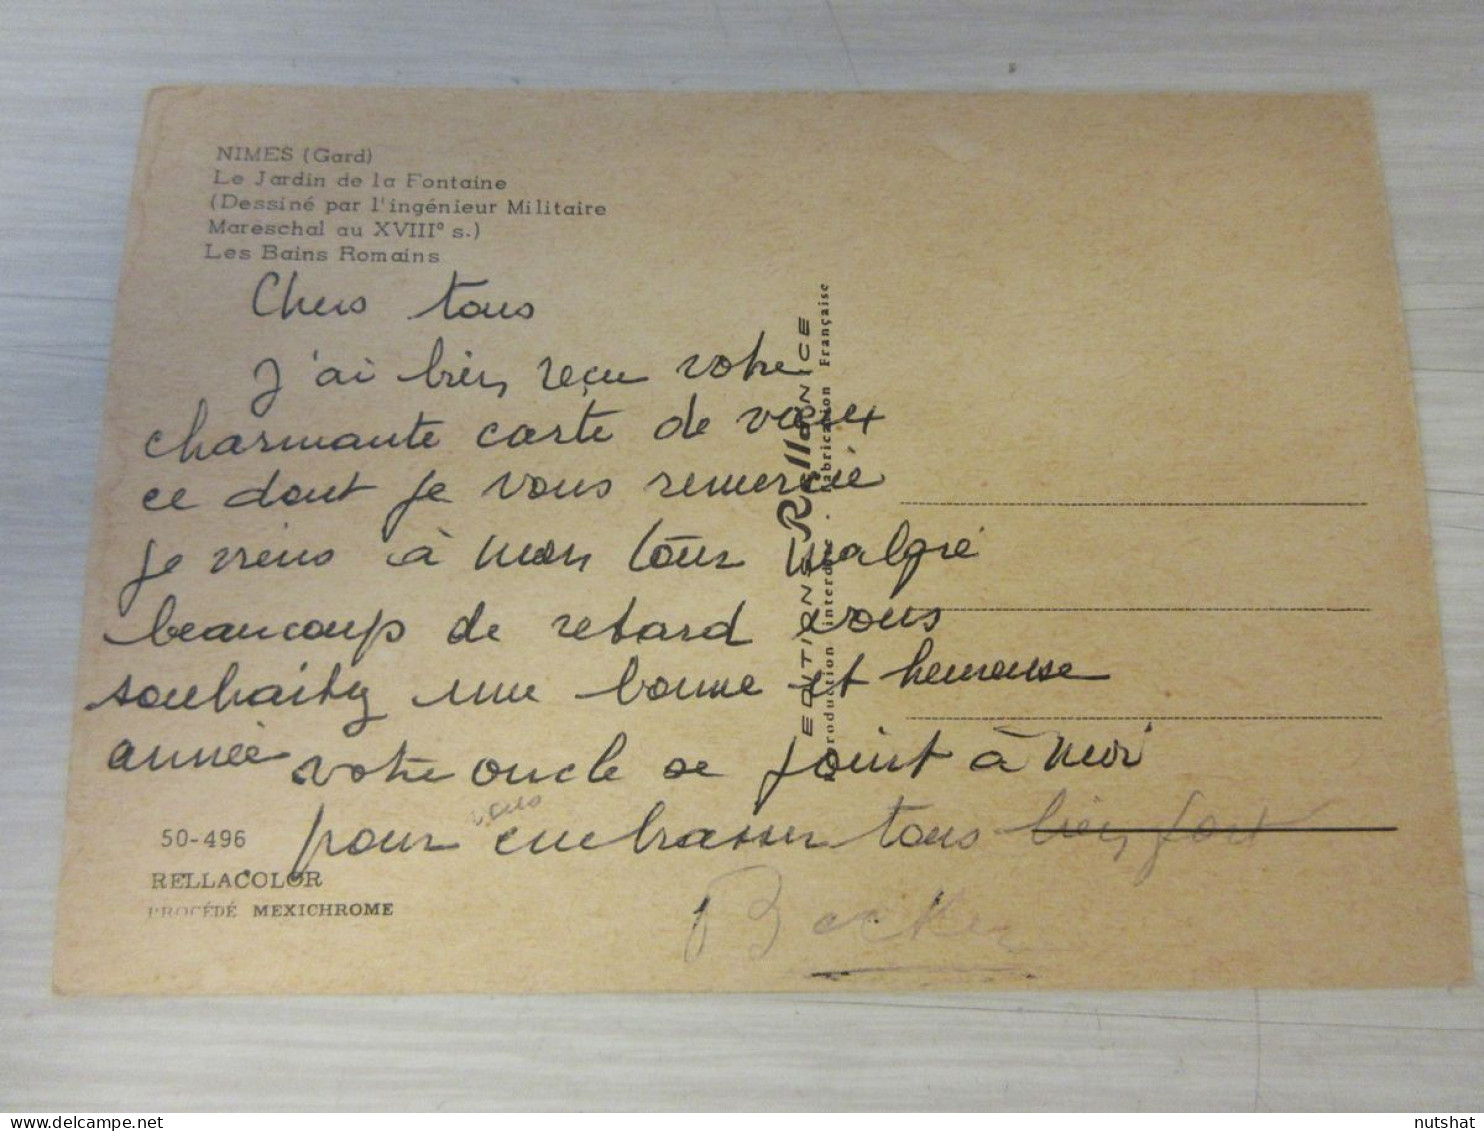 NIMES (Gard)
Le Jardin de la Fontaine
(Dessiné par l'ingénieur Militaire
Mareschal au XVIII° s.)
Les Bains Romains
Chers tous
J'ai bien reçu votre
charmante carte de vœux
ce dont je vous remercie
je viens à mon tour malgré
beaucoup de retard vous
souhaiter une bonne et heureuse
année votre oncle se joint à moi
vous
pour embrasser tous bien fort
Becker
50-496
RELLACOLOR
PROCÉDÉ MEXICHROME
EDITIONS Rella NICE
Reproduction interdite - Fabrication Française
nutshat